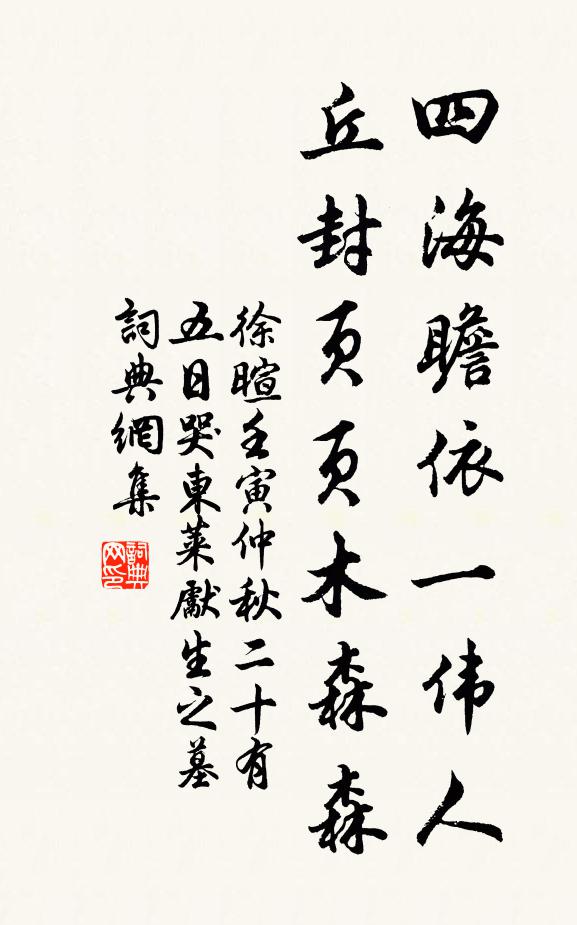 四海瞻依一伟人
丘封页页木森森
徐暄壬寅仲秋二十有
五日哭東萊獻生之墓
詞典網集
詞典
网印